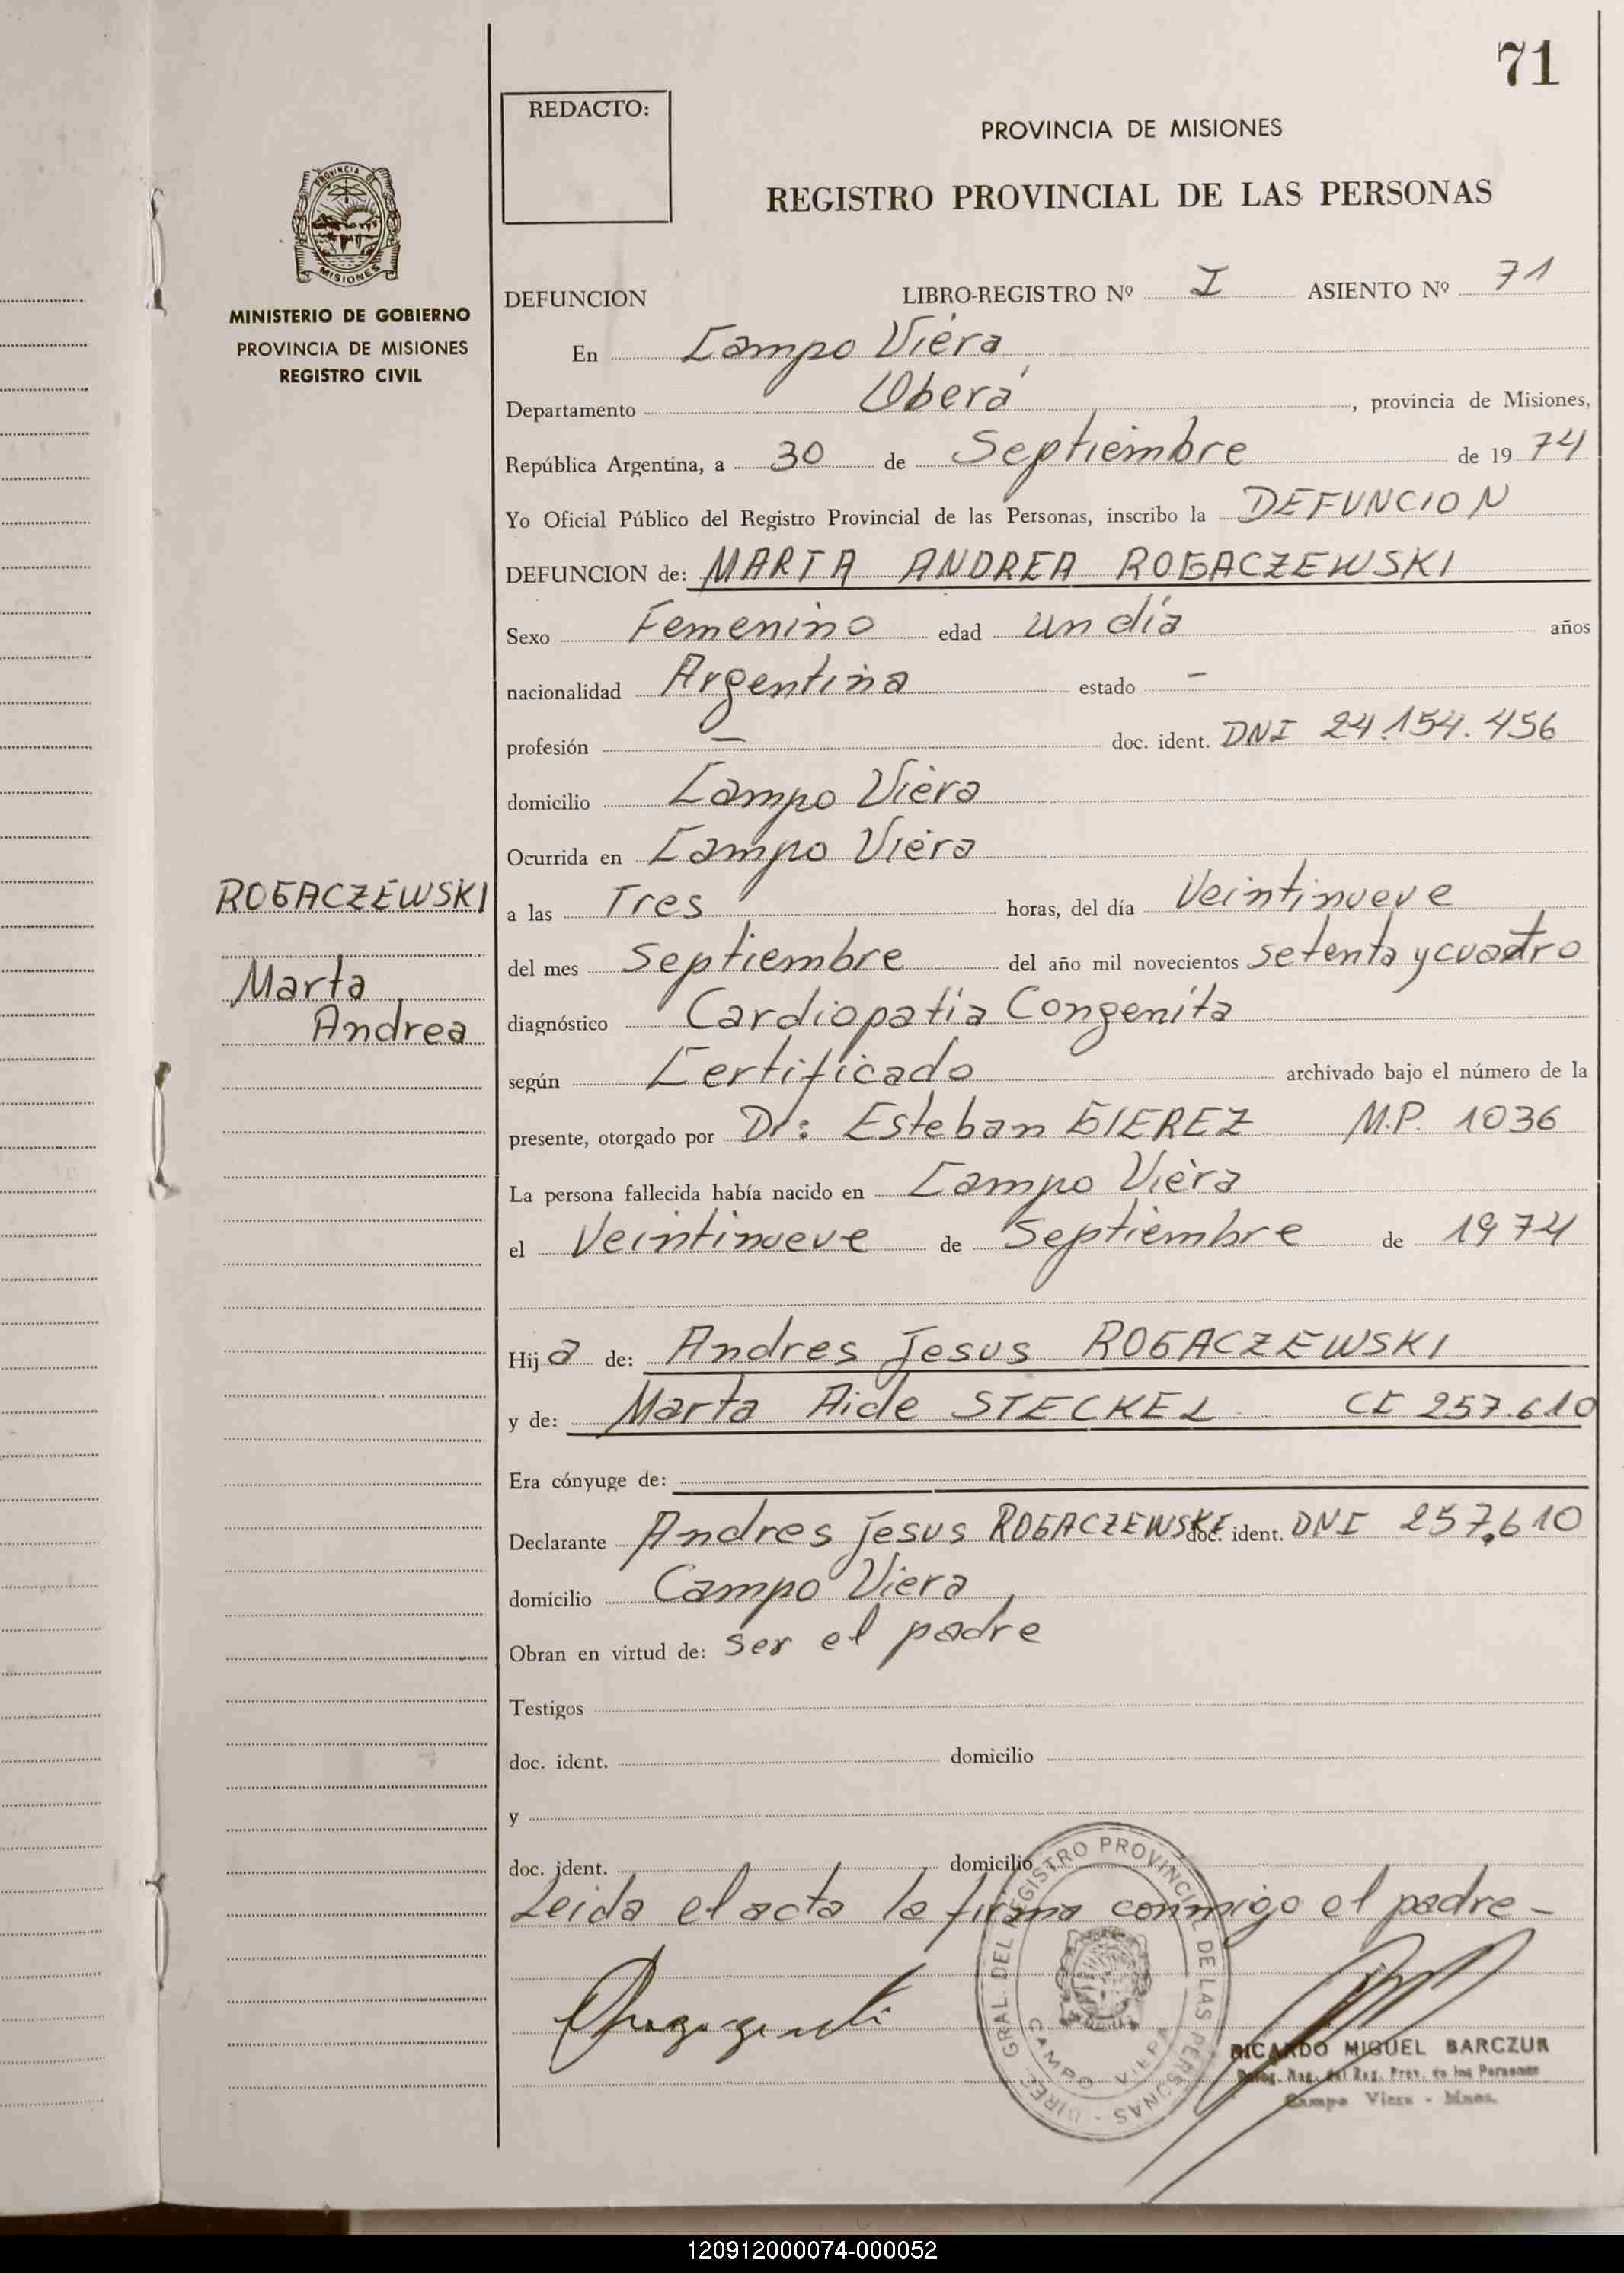 71
REDACTO:
PROVINCIA DE MISIONES
REGISTRO PROVINCIAL DE LAS PERSONAS
PROVINCIA DE
MISIONES
MINISTERIO DE GOBIERNO
PROVINCIA DE MISIONES
REGISTRO CIVIL
DEFUNCION LIBRO-REGISTRO Nº I ASIENTO Nº 71
En Campo Viera
Departamento Oberá, provincia de Misiones,
República Argentina, a 30 de Septiembre de 1974
Yo Oficial Público del Registro Provincial de las Personas, inscribo la DEFUNCION
DEFUNCION de: MARTA ANDREA ROGACZEWSKI
Sexo Femenino edad un día años
nacionalidad Argentina estado -
profesión — doc. ident. DNI 24.154.456
domicilio Campo Viera
Ocurrida en Campo Viera
ROGACZEWSKI
Marta
Andrea
a las Tres horas, del día Veintinueve
del mes Septiembre del año mil novecientos setenta y cuatro
diagnóstico Cardiopatia Congenita
según Certificado archivado bajo el número de la
presente, otorgado por Dr: Esteban GIEREZ M.P. 1036
La persona fallecida había nacido en Campo Viera
el Veintinueve de Septiembre de 1974
Hija de: Andres Jesus ROGACZEWSKI
y de: Marta Aide STECKEL CI 257.610
Era cónyuge de:
Declarante Andres Jesus ROGACZEWSKI doc. ident. DNI 257.610
domicilio Campo Viera
Obran en virtud de: ser el padre
Testigos
doc. ident. domicilio
y
doc. ident. domicilio
Leida el acta la firma conmigo el padre -
DIREC. GRAL. DEL REGISTRO PROVINCIAL DE LAS PERSONAS -
CAMPO VIERA
RICARDO MIGUEL BARCZUK
Deleg. Reg. del Reg. Prov. de las Personas
Campo Viera - Mnes.
120912000074-000052